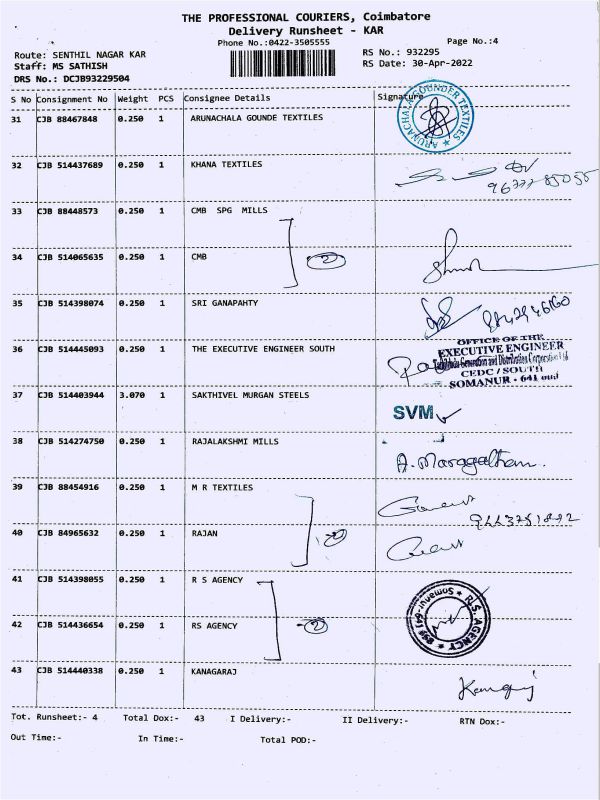 THE PROFESSIONAL COURIERS, Coimbatore
Delivery Runsheet - KAR
Phone No.:0422-3505555
Page No.:4
Route: SENTHIL NAGAR KAR
RS No.: 932295
Staff: MS SATHISH
RS Date: 30-Apr-2022
DRS No.: DCJB93229504
S No Consignment No Weight PCS Consignee Details Signature
31 CJB 88467848 0.250 1 ARUNACHALA GOUNDE TEXTILES
ARUNACHALA GOUNDER TEXTILES
32 CJB 514437689 0.250 1 KHANA TEXTILES
33 CJB 88448573 0.250 1 CMB SPG MILLS
34 CJB 514065635 0.250 1 CMB
2
35 CJB 514398074 0.250 1 SRI GANAPAHTY
36 CJB 514445093 0.250 1 THE EXECUTIVE ENGINEER SOUTH
OFFICE OF THE
EXECUTIVE ENGINEER
Generation and Distribution Corporation Ltd
CEDC / SOUTH
SOMANUR - 641
37 CJB 514403944 3.070 1 SAKTHIVEL MURGAN STEELS
SVM
38 CJB 514274750 0.250 1 RAJALAKSHMI MILLS
A. Maragatham.
39 CJB 88454916 0.250 1 M R TEXTILES
40 CJB 84965632 0.250 1 RAJAN
2
41 CJB 514398055 0.250 1 R S AGENCY
R.S. AGENCY
Somanur-641
42 CJB 514436654 0.250 1 RS AGENCY
2
43 CJB 514440338 0.250 1 KANAGARAJ
Tot. Runsheet:- 4 Total Dox:- 43 I Delivery:- II Delivery:- RTN Dox:-
Out Time:- In Time:- Total POD:-